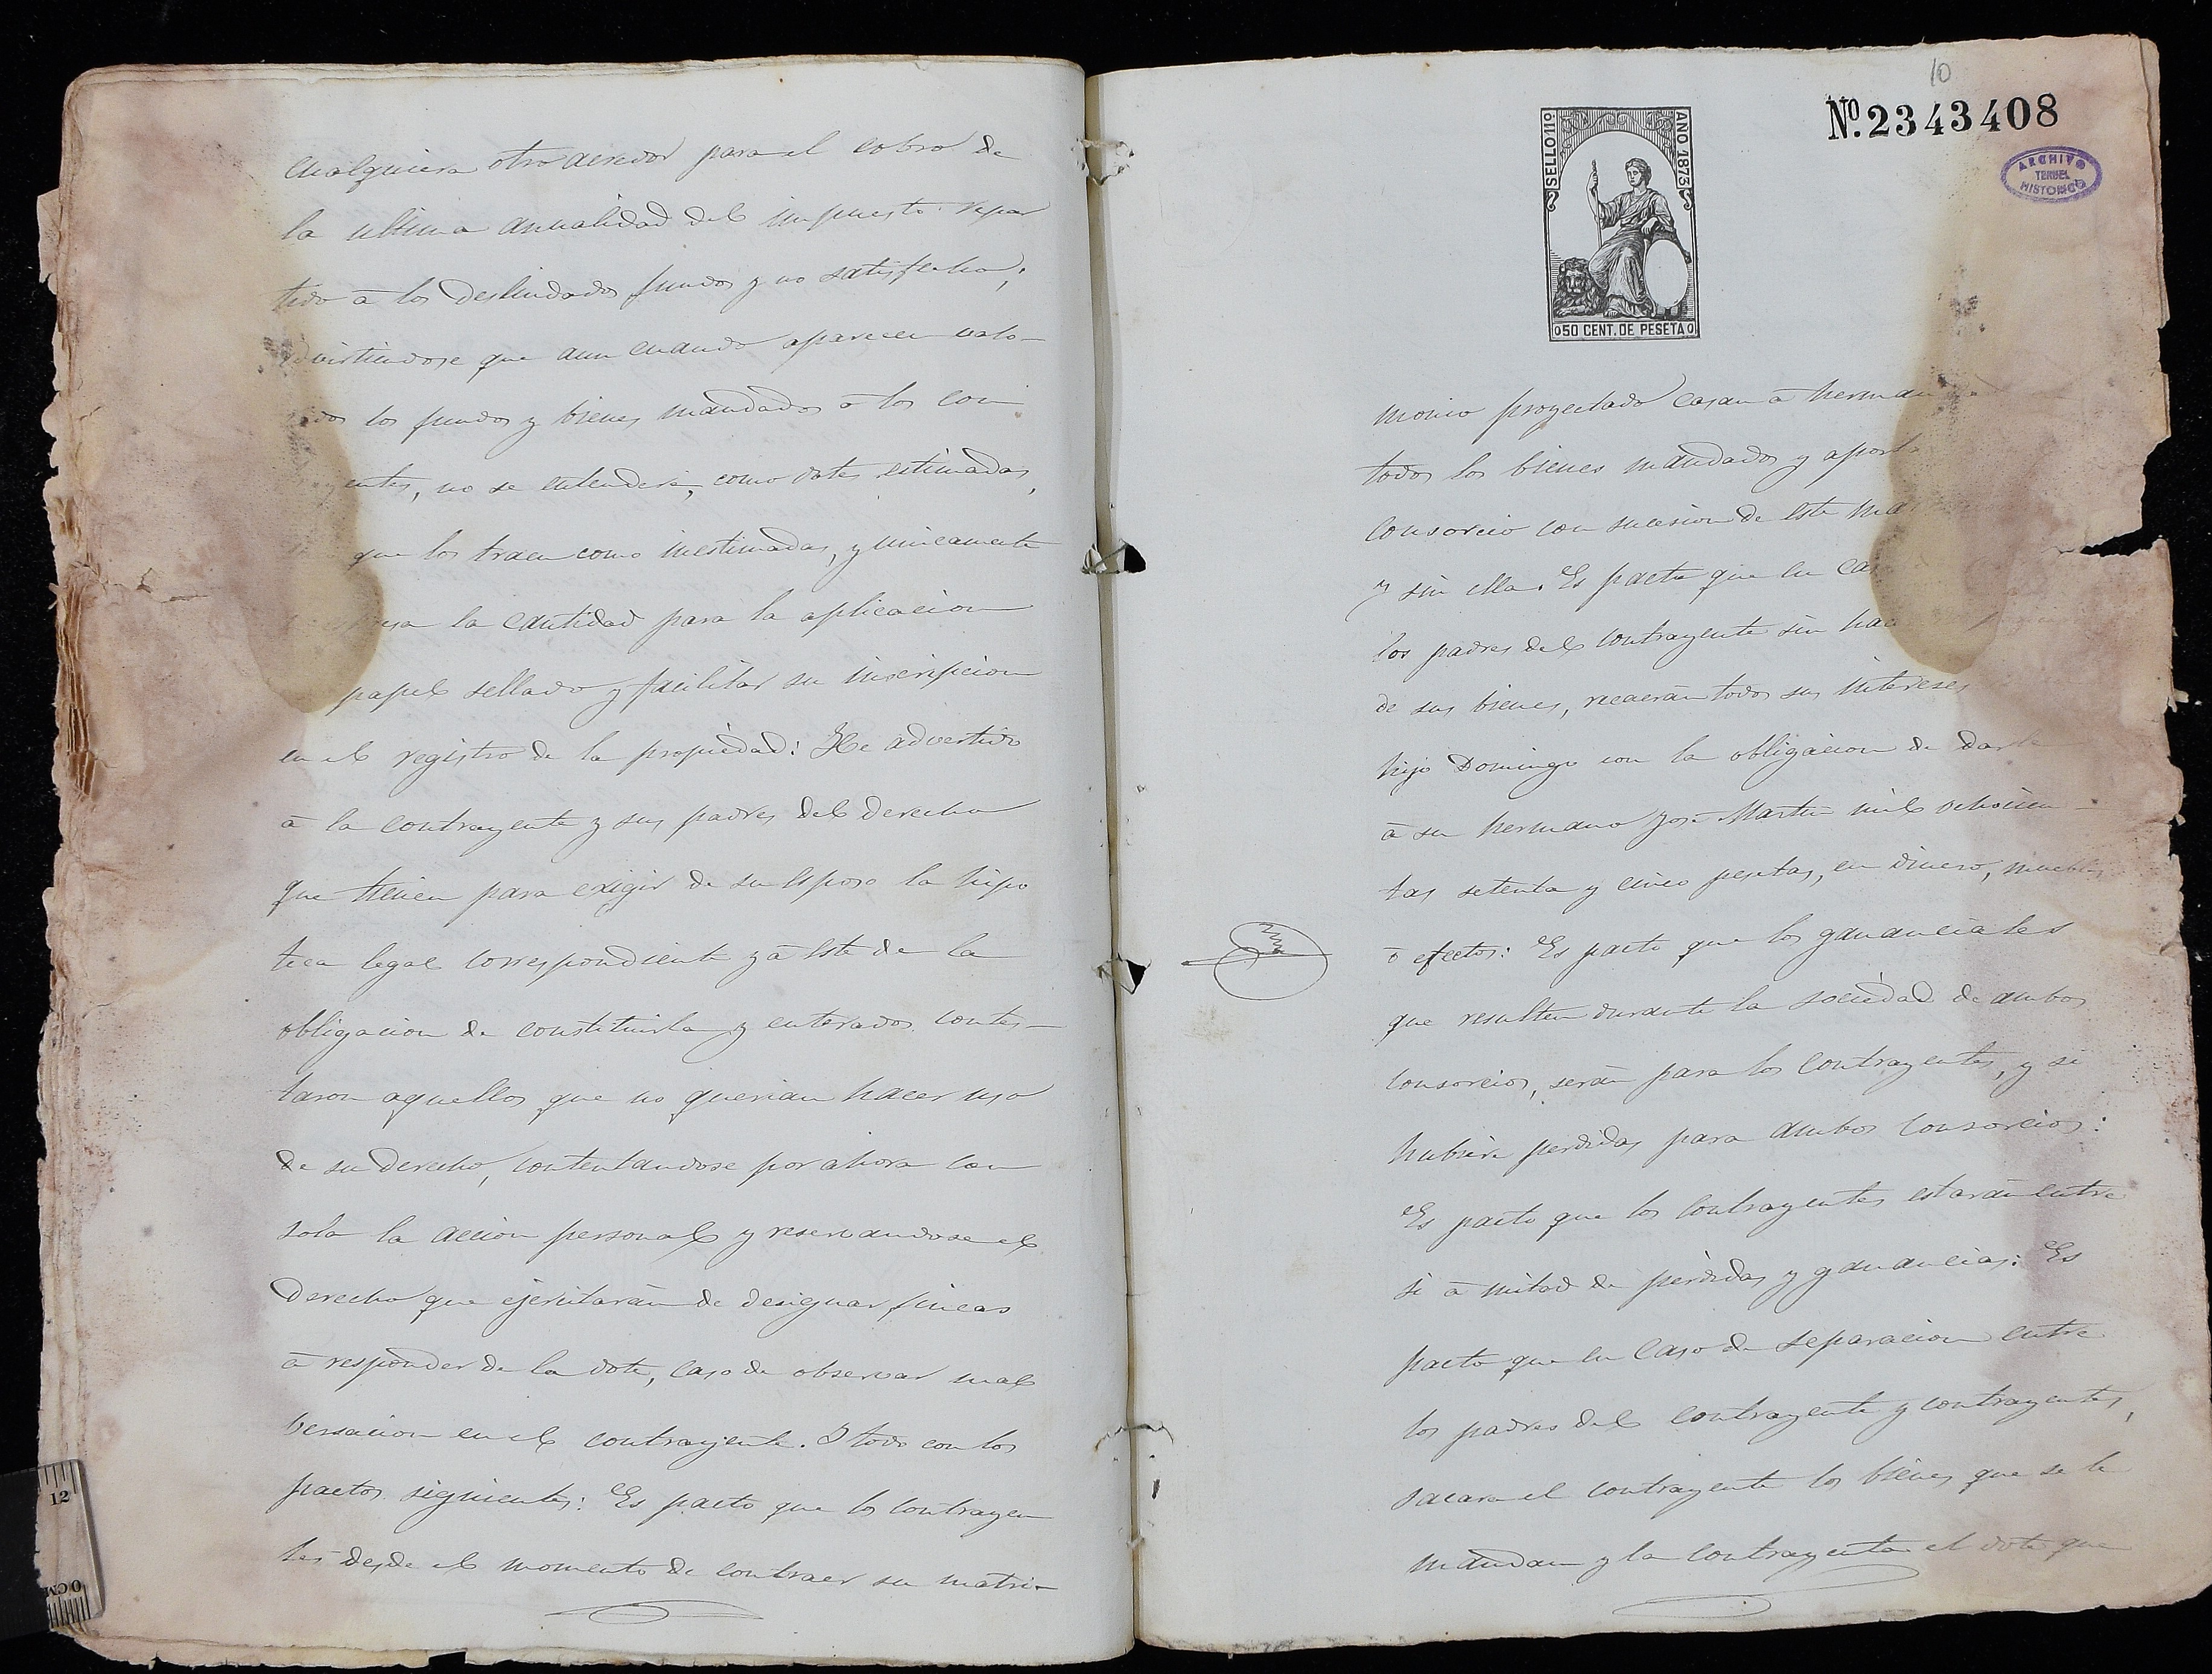 cualquiera otro acreedor para el cobro de
la ultima anualidad del impuesto repar
tido á los deslindados fundos y no satisfecha;
dvirtiendose que aun cuando aparecen valo-
ados los fundos y bienes mandados á los con
yentes, no se entenderá, como dote estimadas,
que los traen como inestimadas, y unicamente
la cantidad para la aplicacion
papel sellado y facilitar su inscripcion
en el registro de la propiedad: He advertido
á la contrayente y sus padres del derecho
que tienen para exigir de su esposo la hipo
teca legal correspondiente y á este de la
obligacion de constituirla y enterados contes-
taron aquellos que no querian hacer uso
de su derecho, contentandose por ahora con
sola la accion personal y reservandose el
derecho que ejercitarán de designar fincas
á responder de la dote, caso de observar mal
versacion en el contrayente. I todo con los
pactos siguientes: Es pacto que los contrayen
tes desde el momento de contraer su matri-
10
Nº. 2343408
SELLO 11º
AÑO 1873
50 CENT. DE PESETA
ARCHIVO
TERUEL
HISTORICO
monio proyectado casan á herman
todos los bienes mandados y aport
consorcio con sucesion de este ma
y sin ella. Es pacto que en ca
los padres del contrayente sin hac
de sus bienes, recaerán todos sus intereses
hijo Domingo con la obligacion de darle
á su hermano José Martin mil ochocien-
tas setenta y cinco pesetas, en dinero, muebles
ó efectos: Es pacto que los gananciales
que resulten durante la sociedad de ambos
consorcios, serán para los contrayentes, y si
hubiere perdidas para ambos consorcios:
Es pacto que los contrayentes estarán entre
si á mitad de perdidas y ganancias: Es
pacto que en caso de separacion entre
los padres del contrayente y contrayentes,
sacara el contrayente los bienes que se le
mandan y la contrayente el dote que